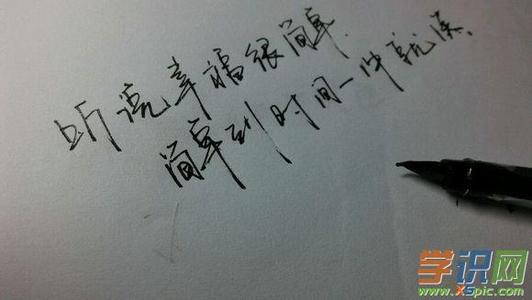 听说幸福很简单.
简单到时间一冲就淡.
学识网
www.XSpic.com